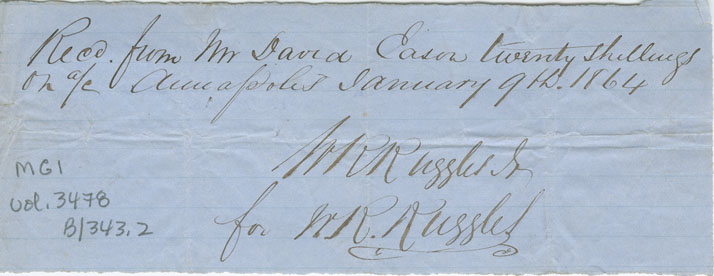 Recd. from Mr David Eason twenty shillings
on a/c Annapolis January 9th. 1864
W R Ruggles Jr
for W R. Ruggles
MG1
vol. 3478
B/343.2